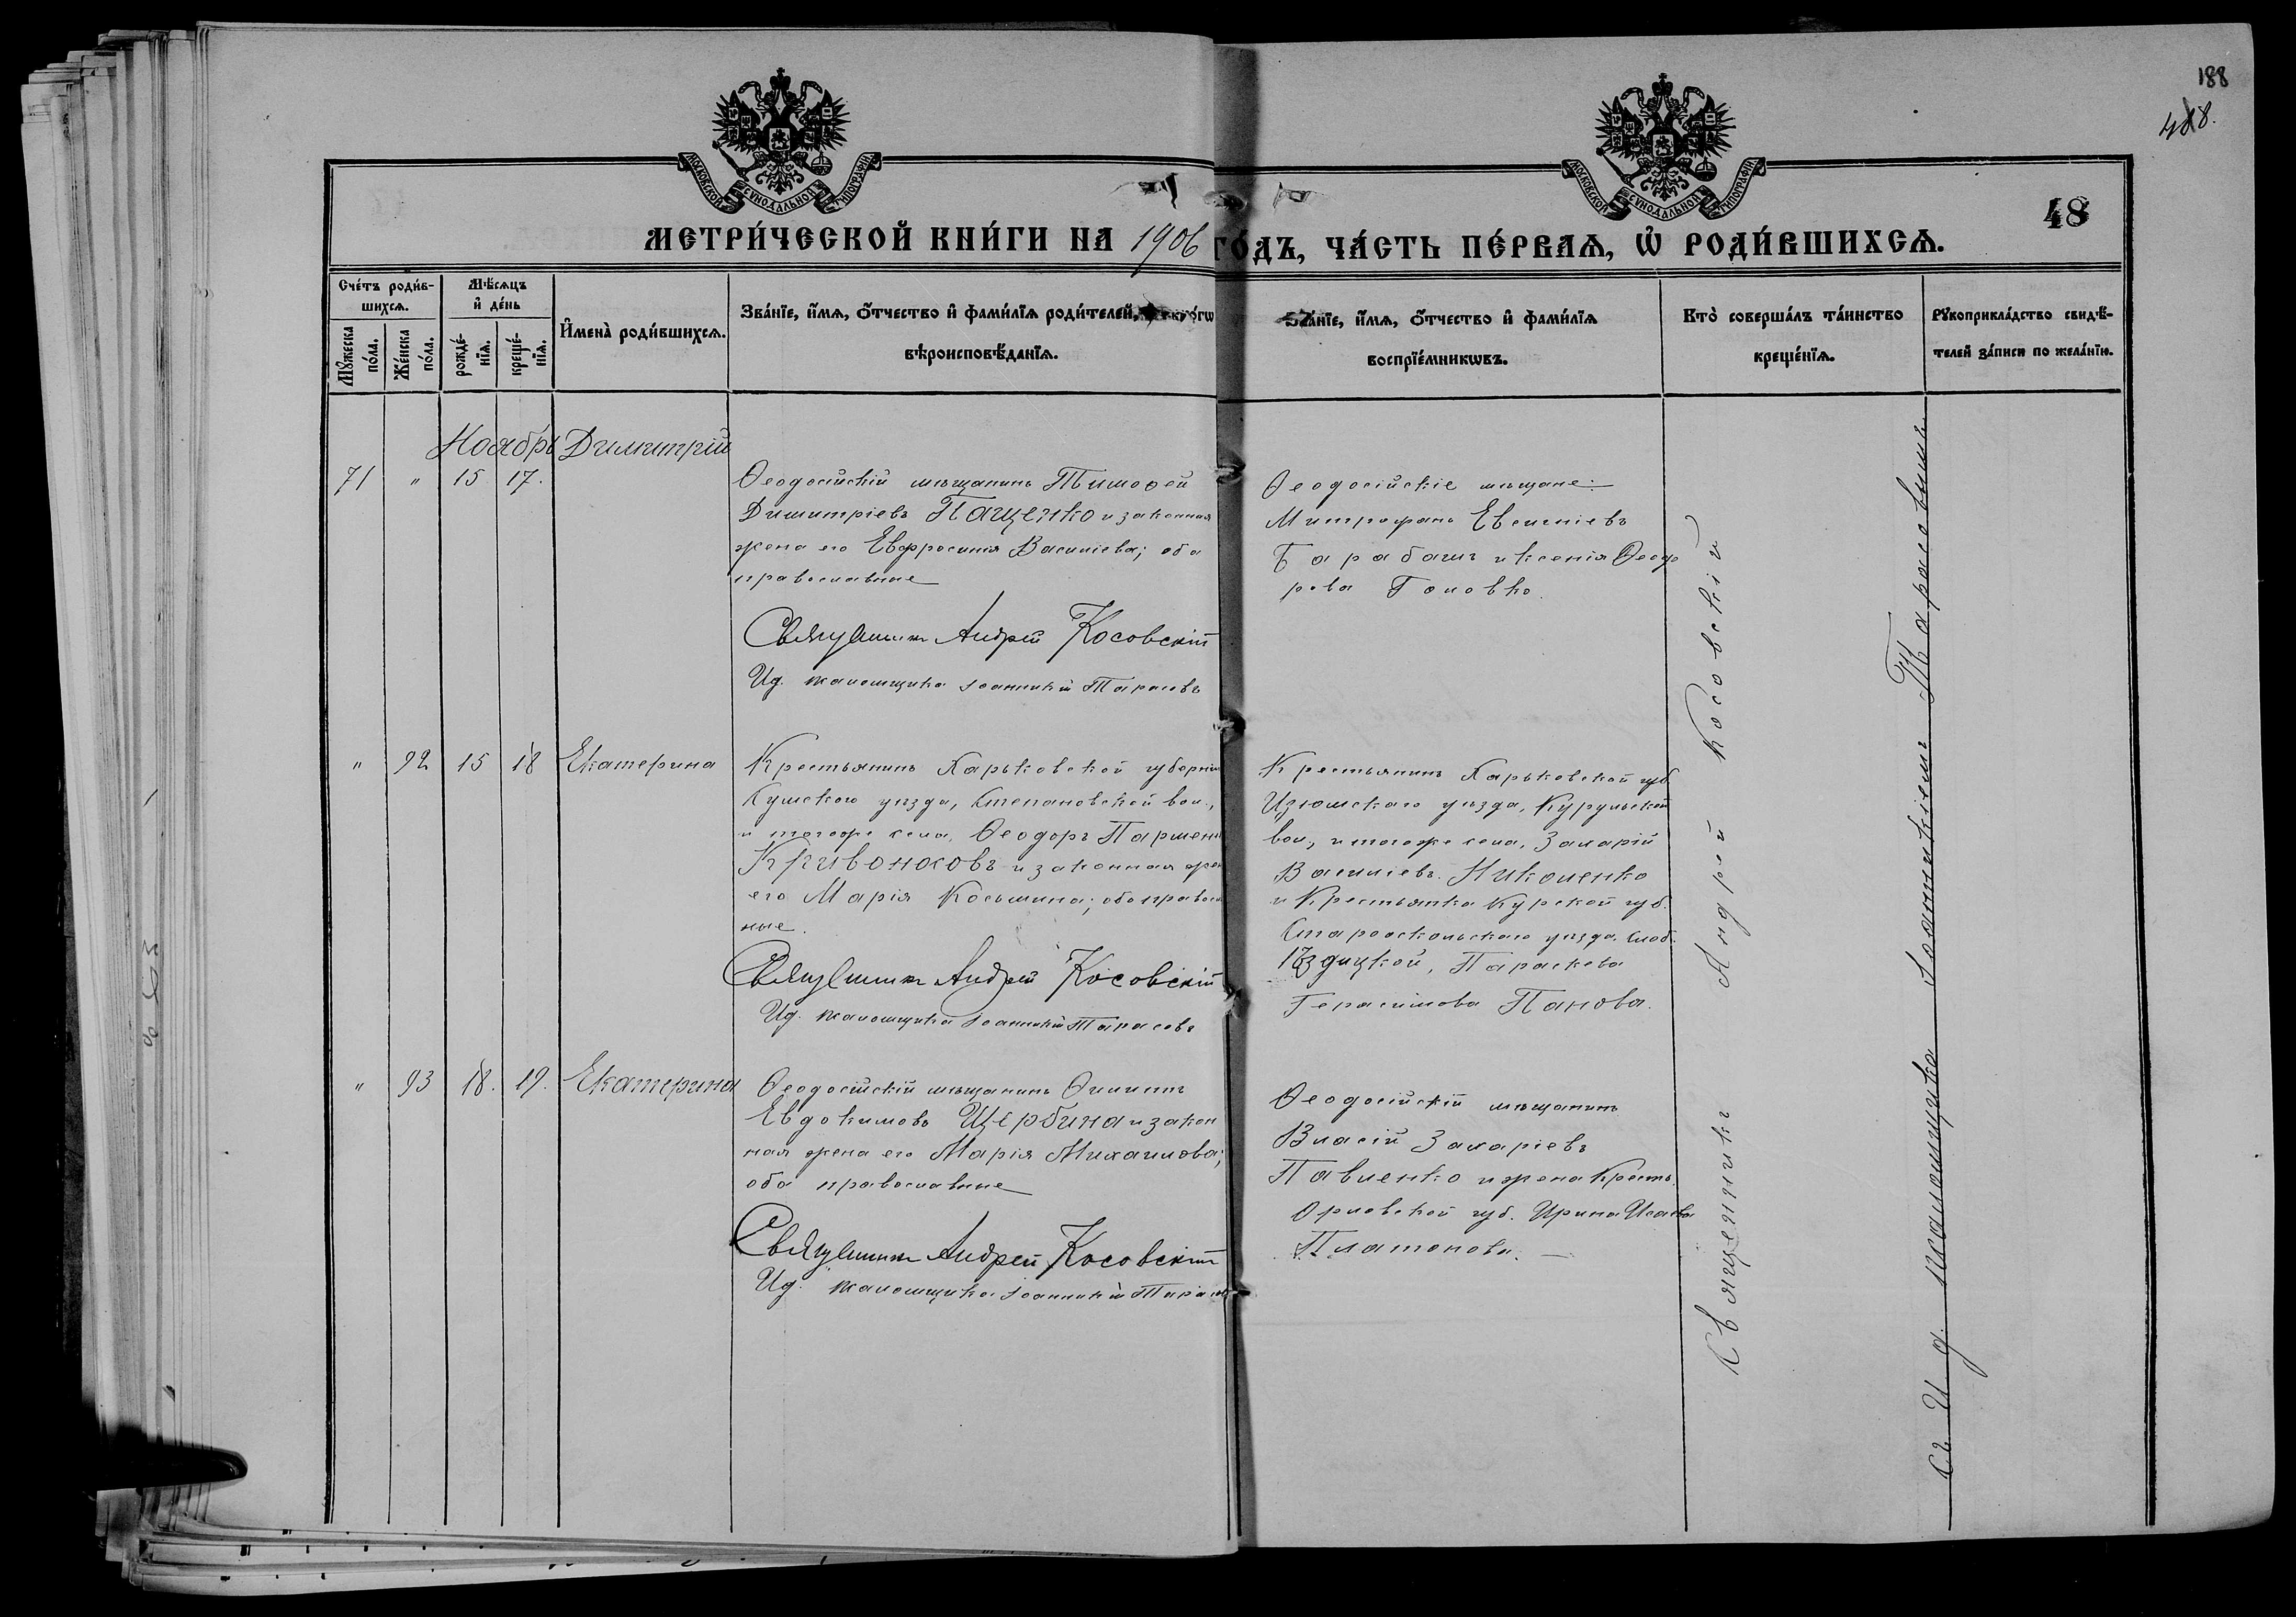 188
488.
48
МОСКОВСКОЙ СѴНОДАЛЬНОЙ ТИПОГРАФІИ
МОСКОВСКОЙ СѴНОДАЛЬНОЙ ТИПОГРАФІИ
МЕТРИ́ЧЕСКОЙ КНИ́ГИ НА 1906 ГО́ДЪ, ЧА́СТЬ ПЕ́РВАѦ, Ѡ҆ РОДИ́ВШИХСѦ.
Сче́тъ роди́в-
шихсѧ.
Мꙋ́жеска
по́ла.
Же́нска
по́ла.
Мѣ́сѧцъ
и҆ де́нь
рожде́-
нїѧ.
креще́-
нїѧ.
И҆мена̀ роди́вшихсѧ.
Зва́нїе, и҆́мѧ, ѻ҆́тчество и҆ фами́лїѧ роди́телей,
вѣроисповѣ́данїѧ.
Зва́нїе, и҆́мѧ, ѻ҆́тчество и҆ фами́лїѧ
воспрїе́мникѡвъ.
Кто̀ соверша́лъ та́инство
креще́нїѧ.
Рꙋкоприкла́дство свидѣ́-
телей за́писи по жела́нїю.
Ноябрь Димитрій
71 " 15 17.
Ѳеодосійскій мѣщанинъ Тимоѳей
Димитріевъ Пащенко и законная
жена его Евфросинія Василіева; оба
православные
Священникъ Андрей Косовскій
Ид. псаломщика Іоанникій Тарасовъ
Ѳеодосійскіе мѣщане:
Митрофанъ Евгеніевъ
Барабашъ и Ксенія Ѳеодо
рова Головко.
" 92 15 18 Екатерина
Крестьянинъ Харьковской губерніи
Сумского уѣзда, Степановской вол.,
и тогоже села, Ѳеодоръ Парѳені
Кривоносовъ и законная жен
его Марія Косьмина; оба правосл
ные.
Священникъ Андрей Косовскій
Ид. псаломщика Іоанникій Тарасовъ
Крестьянинъ Харьковской губ.
Изюмскаго уѣзда, Курульской
вол., и тогоже села, Захарій
Василіевъ Николенко
и Крестьянка Курской губ.
Старооскольскаго уѣзда, слоб.
Ездоцкой, Параскева
Герасимова Панова.
" 93 18. 19. Екатерина
Ѳеодосійскій мѣщанинъ Филиппъ
Евдокимовъ Щербина и закон
ная жена его Марія Михаилова;
оба православные
Священникъ Андрей Косовскій
Ид. псаломщика Іоанникій Тарасов
Ѳеодосійскій мѣщанинъ
Власій Захаріевъ
Павленко и жена Крест.
Орловской губ. Ирина Исаева
Платонова.
Священникъ Андрей Косовскій
съ И д. псаломщика Іоанникіемъ Тарасовымъ